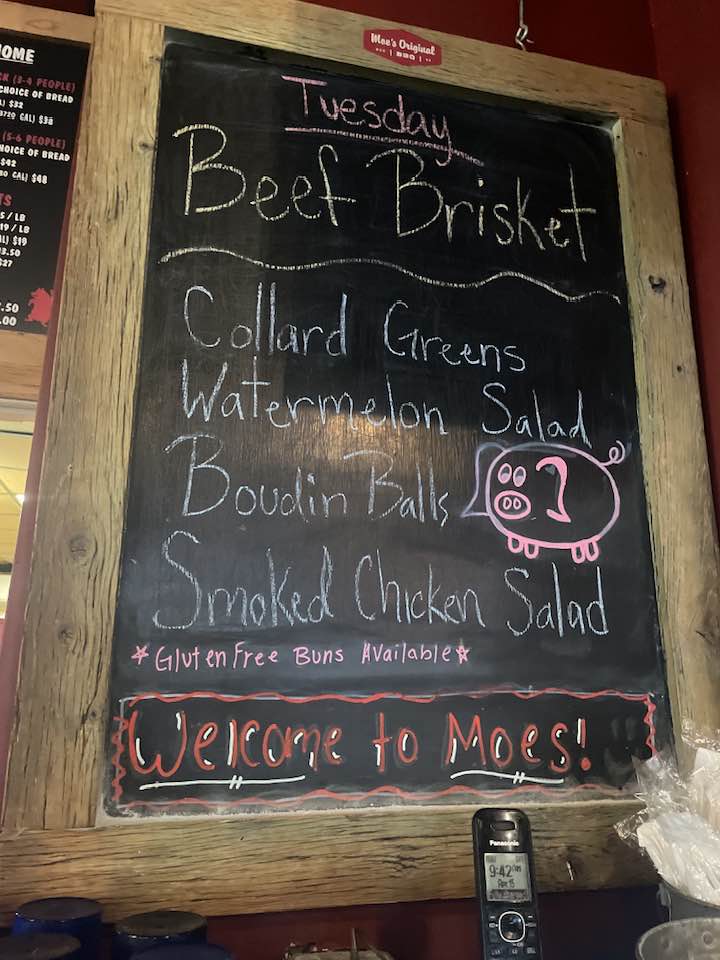 Moe's Original
BBQ
Tuesday
Beef Brisket
Collard Greens
Watermelon Salad
Boudin Balls
Smoked Chicken Salad
*Gluten Free Buns Available*
Welcome to Moes!
OME
(3-4 PEOPLE)
CHOICE OF BREAD
$32
3720 CAL) $38
(5-6 PEOPLE)
HOICE OF BREAD
$42
CAL) $48
TS
5 / LB
19 / LB
AL) $19
13.50
$27
7.50
.00
Panasonic
9:42